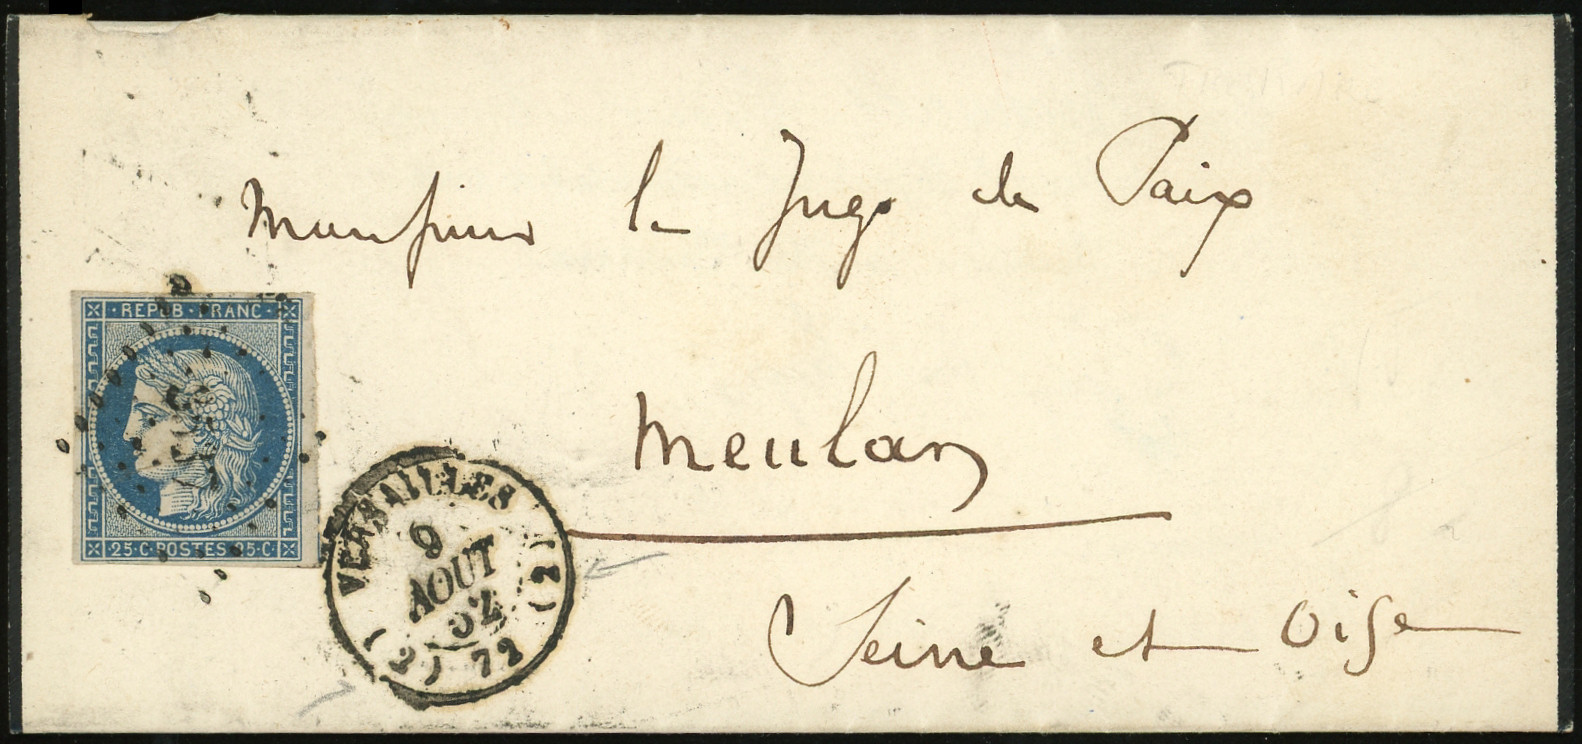 Monsieur le Juge de Paix
REPUB · FRANC ·
Meulan
25 · C · POSTES · 25 · C ·
VERSAILLES (2)
9
AOUT
52
(2) 72
Seine et Oise